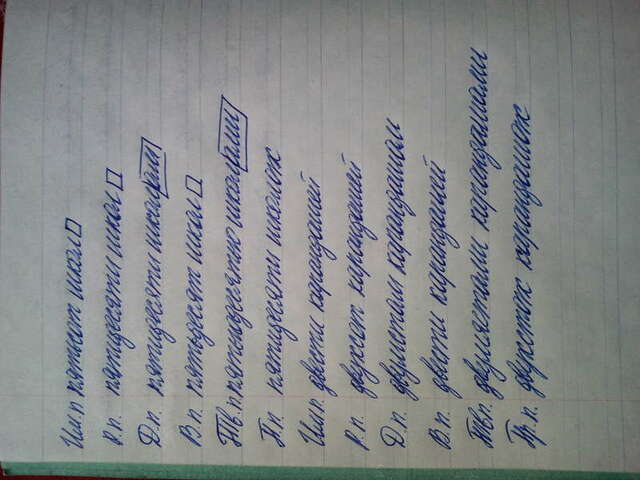 Им.п. пятьсот школ
Р.п. пятидесяти школ
Д.п. пятидесяти школам
В.п. пятьдесят школ
Тв.п. пятьюдесятью школами
П.п. пятидесяти школах
Им.п. двести карандашей
Р.п. двухсот карандашей
Д.п. двумстам карандашам
В.п. двести карандашей
Тв.п. двумястами карандашами
Пр.п. двухстах карандашах